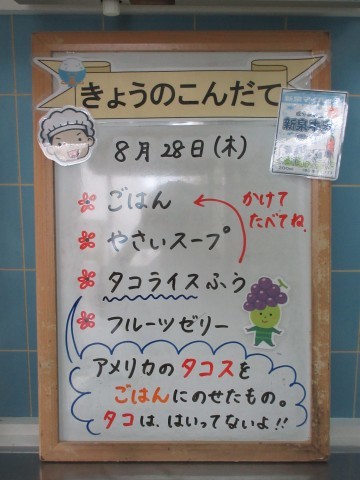 きょうのこんだて
8月28日(木)
ごはん
かけて
たべてね。
やさいスープ
タコライスふう
フルーツゼリー
アメリカのタコスを
ごはんにのせたもの。
タコは、はいってないよ!!